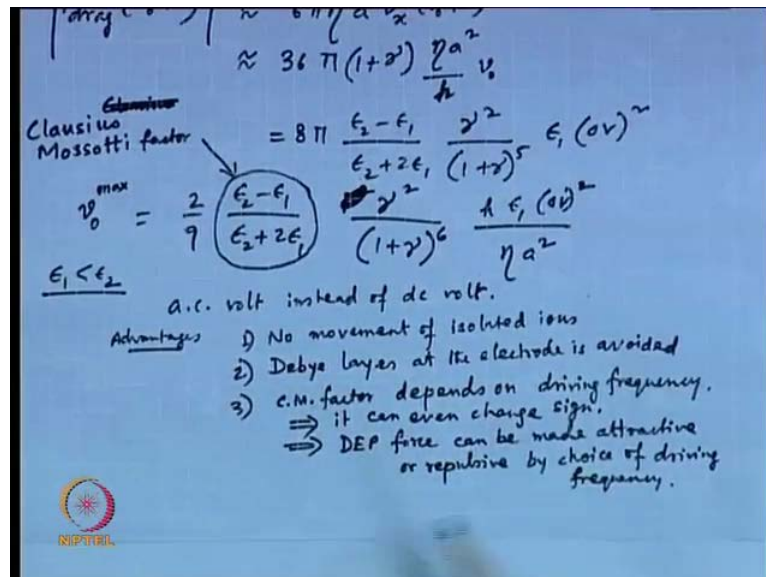 ≈ 36 π (1+γ) ηa²/h v₀
Clausius
Mossotti factor
= 8π (ϵ₂ - ϵ₁)/(ϵ₂ + 2ϵ₁) γ²/(1+γ)⁵ ϵ₁ (Δv)²
v₀ᵐᵃˣ = 2/9 (ϵ₂ - ϵ₁)/(ϵ₂ + 2ϵ₁) γ²/(1+γ)⁶ h ϵ₁ (Δv)²/ηa²
ϵ₁ < ϵ₂
a.c. volt instead of dc volt.
Advantages 1) No movement of isolated ions
2) Debye layer at the electrode is avoided
3) C.M. factor depends on driving frequency.
⇒ it can even change sign.
⇒ DEP force can be made attractive
or repulsive by choice of driving
frequency.
NPTEL